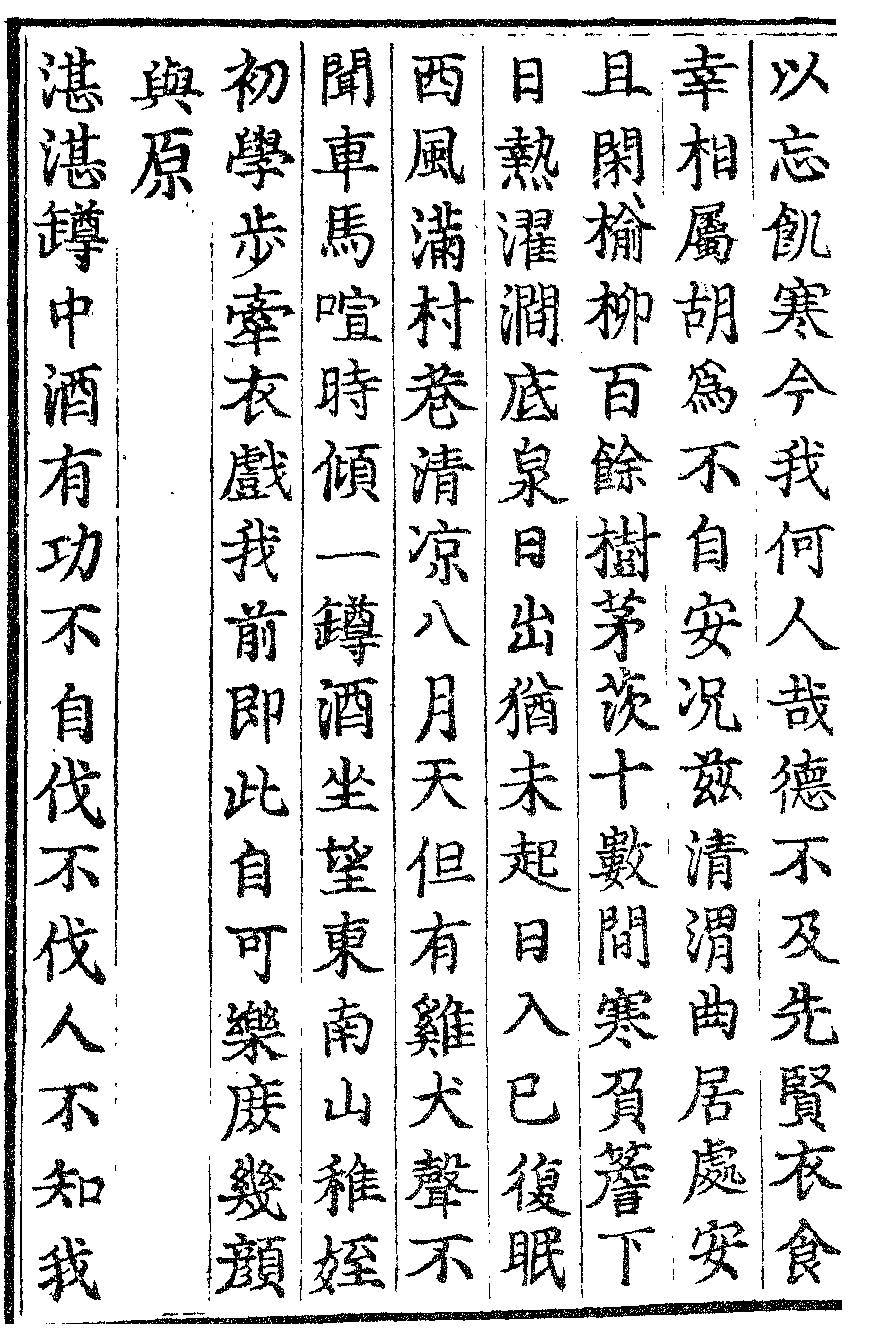 以忘飢寒今我何人哉德不及先賢衣食
幸相屬胡爲不自安况兹清渭曲居處安
且閑榆柳百餘樹茅茨十數間寒負簷下
日熱濯澗底泉日出猶未起日入已復眠
西風滿村巷清凉八月天但有雞犬聲不
聞車馬喧時傾一罇酒坐望東南山稚姪
初學步牽衣戲我前即此自可樂庶幾顔
與原
湛湛罇中酒有功不自伐不伐人不知我